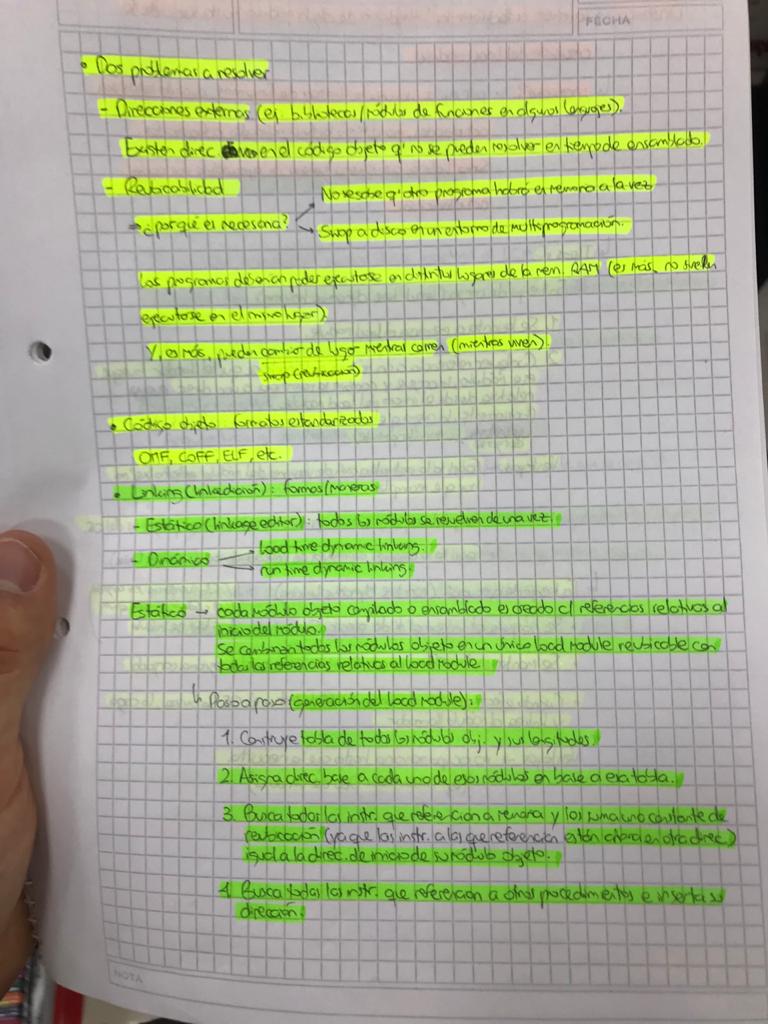 FECHA
• Dos problemas a resolver
- Direcciones externas (ej. bibliotecas/módulos de funciones en algunos lenguajes).
Existen direc en el código objeto q' no se pueden resolver en tiempo de ensamblado.
- Reubicabilidad
No se sabe q' otro programa habrá en memoria a la vez
→ ¿por qué es necesaria?
Swap a disco en un entorno de multiprogramación.
Los programas deberían poder ejecutarse en distintos lugares de la mem. RAM (es más, no suelen
ejecutarse en el mismo lugar).
Y, es más, pueden cambiar de lugar mientras corren (mientras viven).
swap (reubicación)
• Código objeto formatos estandarizados
OMF, COFF, ELF, etc.
• Linking (linkedición): formas/maneras
- Estático (linkage editor): todos los módulos se resuelven de una vez.
- Dinámico
load time dynamic linking.
run time dynamic linking.
Estático → cada módulo objeto compilado o ensamblado es creado c/ referencias relativas al
inicio del módulo.
Se combinan todos los módulos objeto en un único load module reubicable con
todas las referencias relativas al load module.
↳ Paso a paso (generación del load module):
1. Construye tabla de todos los módulos obj. y sus longitudes.
2. Asigna direc. base a cada uno de esos módulos en base a esa tabla.
3. Busca todas las instr. que referencian a memoria y les suma una constante de
reubicación (ya que las instr. a las que referencian están ahora en otra direc.)
igual a la direc. de inicio de su módulo objeto.
4. Busca todas las instr. que referencian a otros procedimientos e inserta su
dirección.
NOTA